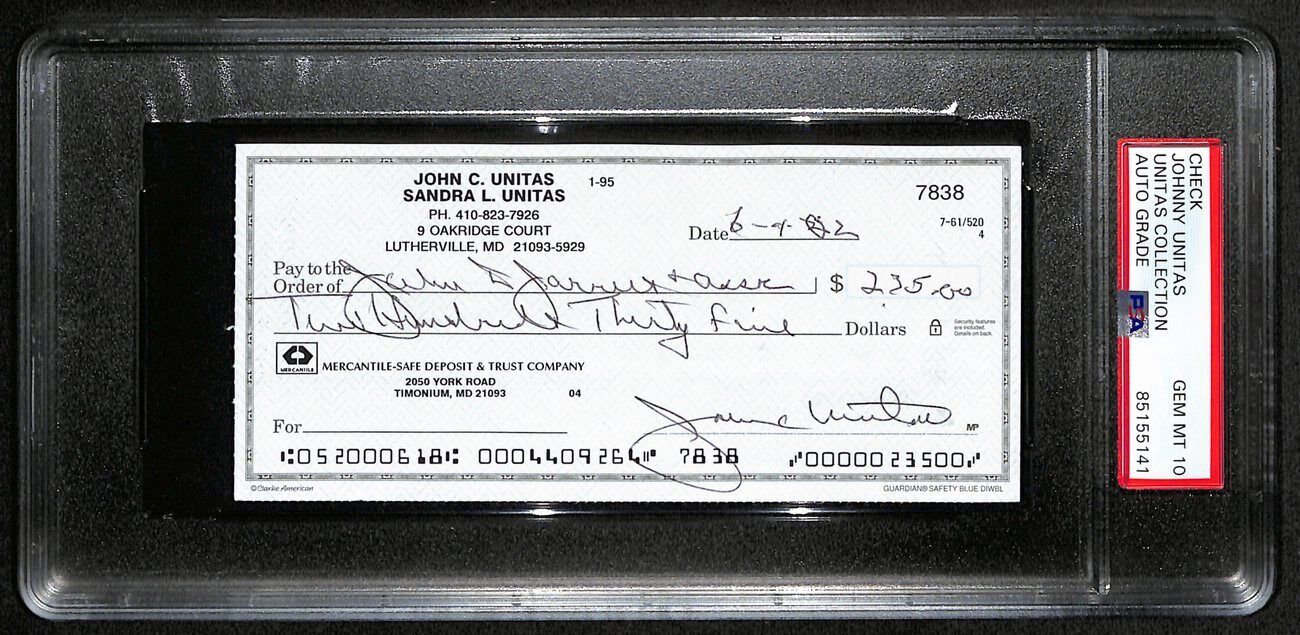 JOHN C. UNITAS 1-95
SANDRA L. UNITAS
PH. 410-823-7926
9 OAKRIDGE COURT
LUTHERVILLE, MD 21093-5929
7838
7-61/520
4
Date
Pay to the
Order of John $ 235.00
Two Hundred Thirty Five Dollars
Security features
are included.
Details on back.
MERCANTILE
MERCANTILE-SAFE DEPOSIT & TRUST COMPANY
2050 YORK ROAD
TIMONIUM, MD 21093 04
For John C Unitas MP
⑆052000618⑆ 0004409264⑈ 7838 ⑇0000023500⑇
©Clarke American GUARDIAN® SAFETY BLUE DIWBL
CHECK
JOHNNY UNITAS
UNITAS COLLECTION GEM MT 10
AUTO GRADE 85155141
PSA